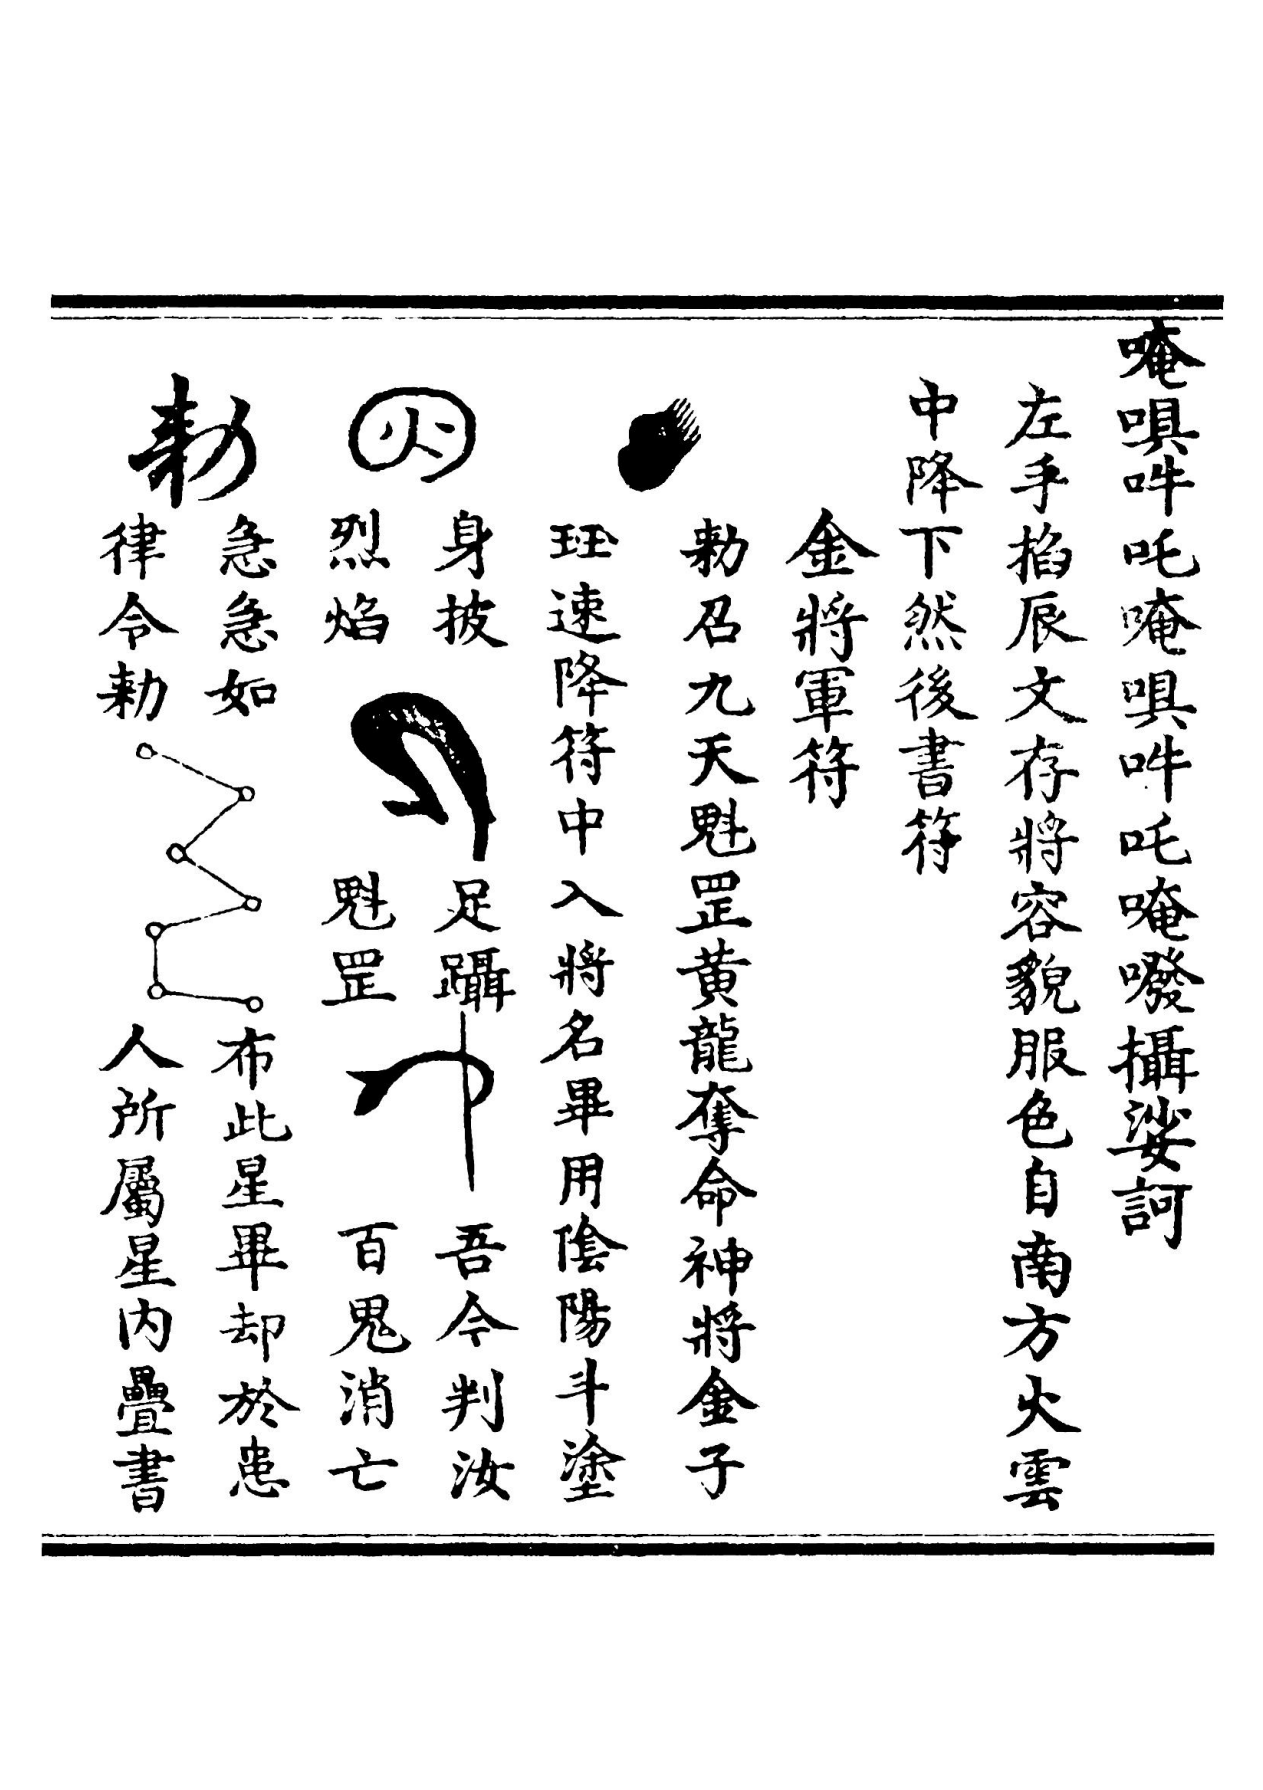 唵㖵吽吒唵㖵吽吒唵㘔攝娑訶
左手掐辰文存將容貌服色自南方火雲
中降下然後書符
金將軍符
勑召九天魁罡黃龍奪命神將金子
速降符中入將名畢用陰陽斗塗
火
身披
烈焰
足躡
魁罡
吾今判汝
百鬼消亡
勑
急急如
律令勑
布此星畢却於患
人所屬星内疊書